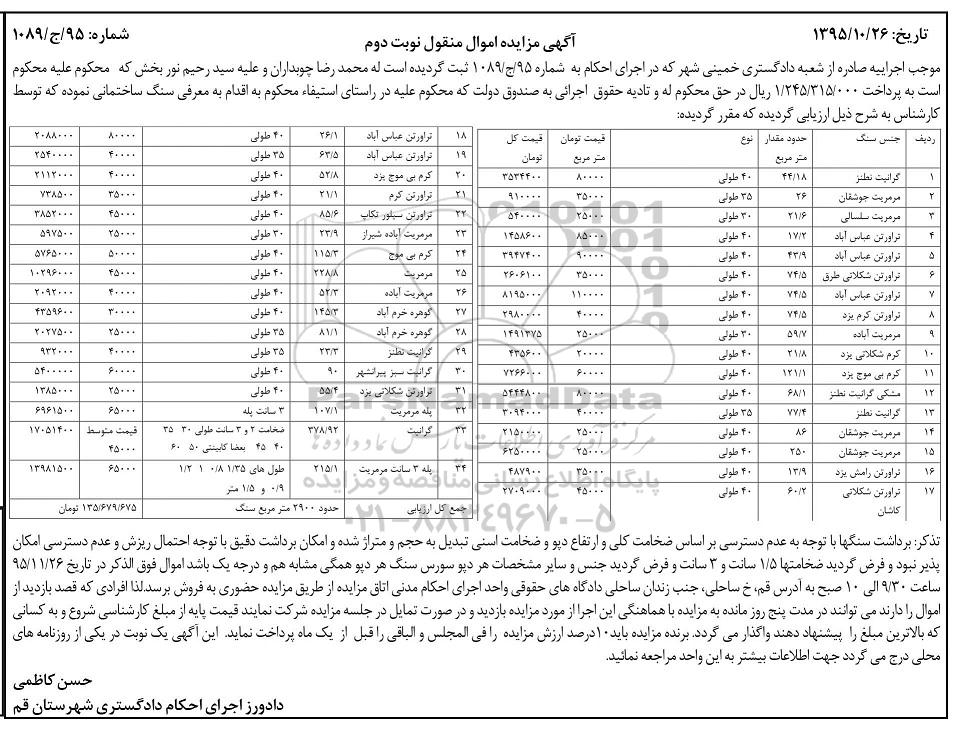 تاریخ: ۱۳۹۵/۱۰/۲۶
شماره: ۹۵/ج/۱۰۸۹
آگهی مزایده اموال منقول نوبت دوم
موجب اجراییه صادره از شعبه دادگستری خمینی شهر که در اجرای احکام به شماره ۹۵/ج/۱۰۸۹ ثبت گردیده است له محمد رضا چوبداران و علیه سید رحیم نور بخش که محکوم علیه محکوم
است به پرداخت ۱/۲۴۵/۳۱۵/۰۰۰ ریال در حق محکوم له و تادیه حقوق اجرائی به صندوق دولت که محکوم علیه در راستای استیفاء محکوم به اقدام به معرفی سنگ ساختمانی نموده که توسط
کارشناس به شرح ذیل ارزیابی گردیده که مقرر گردیده:
ردیف جنس سنگ حدود مقدار متر مربع نوع قیمت تومان متر مربع قیمت کل تومان
۱ گرانیت نطنز ۴۴/۱۸ ۴۰ طولی ۸۰۰۰۰ ۳۵۳۴۴۰۰
۲ مرمریت جوشقان ۲۶ ۳۵ طولی ۳۵۰۰۰ ۹۱۰۰۰۰
۳ مرمریت سلسالی ۲۱/۶ ۴۰ طولی ۲۵۰۰۰ ۵۴۰۰۰۰
۴ تراورتن عباس آباد ۱۷/۲ ۴۰ طولی ۸۵۰۰۰ ۱۴۵۸۶۰۰
۵ تراورتن عباس آباد ۴۳/۹ ۴۰ طولی ۹۰۰۰۰ ۳۹۴۷۴۰۰
۶ تراورتن شکلاتی طرق ۷۴/۵ ۴۰ طولی ۳۵۰۰۰ ۲۶۰۶۱۰۰
۷ تراورتن عباس آباد ۷۴/۵ ۴۰ طولی ۱۱۰۰۰۰ ۸۱۹۵۰۰۰
۸ تراورتن کرم یزد ۷۴/۵ ۴۰ طولی ۴۰۰۰۰ ۲۹۸۰۰۰۰
۹ مرمریت آباده ۵۹/۷ ۳۰ طولی ۲۵۰۰۰ ۱۴۹۱۳۷۵
۱۰ کرم شکلاتی یزد ۲۱/۸ ۴۰ طولی ۲۰۰۰۰ ۴۳۵۶۰۰
۱۱ کرم بی موج یزد ۱۲۱/۱ ۴۰ طولی ۶۰۰۰۰ ۷۲۶۶۰۰۰
۱۲ مشکی گرانیت نطنز ۶۸/۱ ۴۰ طولی ۸۰۰۰۰ ۵۴۴۴۸۰۰
۱۳ گرانیت نطنز ۷۷/۴ ۳۵ طولی ۴۰۰۰۰ ۳۰۹۴۰۰۰
۱۴ مرمریت جوشقان ۸۶ ۴۰ طولی ۲۵۰۰۰ ۲۱۵۰۰۰۰
۱۵ مرمریت جوشقان ۲۵۰ ۴۰ طولی ۲۵۰۰۰ ۶۲۵۰۰۰۰
۱۶ تراورتن رامش یزد ۱۳/۹ ۴۰ طولی ۳۵۰۰۰ ۴۸۷۹۰۰
۱۷ تراورتن شکلاتی کاشان ۶۰/۲ ۴۰ طولی ۴۵۰۰۰ ۲۷۰۹۰۰۰
۱۸ تراورتن عباس آباد ۲۶/۱ ۴۰ طولی ۸۰۰۰۰ ۲۰۸۸۰۰۰
۱۹ تراورتن عباس آباد ۶۳/۵ ۳۵ طولی ۴۰۰۰۰ ۲۵۴۰۰۰۰
۲۰ کرم بی موج یزد ۵۲/۸ ۴۰ طولی ۴۰۰۰۰ ۲۱۱۲۰۰۰
۲۱ تراورتن کرم ۲۱/۱ ۴۰ طولی ۳۵۰۰۰ ۷۳۸۵۰۰
۲۲ تراورتن سیلور تکاب ۸۵/۶ ۴۰ طولی ۴۵۰۰۰ ۳۸۵۲۰۰۰
۲۳ مرمریت آباده شیراز ۲۳/۹ ۳۰ طولی ۲۵۰۰۰ ۵۹۷۵۰۰
۲۴ کرم بی موج ۱۱۵/۳ ۴۰ طولی ۵۰۰۰۰ ۵۷۶۵۰۰۰
۲۵ مرمریت ۲۲۸/۸ ۴۰ طولی ۴۵۰۰۰ ۱۰۲۹۶۰۰۰
۲۶ مرمریت آباده ۵۲/۳ ۴۰ طولی ۴۰۰۰۰ ۲۰۹۲۰۰۰
۲۷ گوهره خرم آباد ۱۴۵/۳ ۴۰ طولی ۳۰۰۰۰ ۴۳۵۹۶۰۰
۲۸ گوهره خرم آباد ۸۱/۱ ۳۵ طولی ۲۵۰۰۰ ۲۰۲۷۵۰۰
۲۹ گرانیت نطنز ۲۳/۳ ۳۵ طولی ۴۰۰۰۰ ۹۳۲۰۰۰
۳۰ گرانیت سبز پیرانشهر ۹۰ ۴۰ طولی ۶۰۰۰۰ ۵۴۰۰۰۰۰
۳۱ تراورتن شکلاتی یزد ۵۵/۴ ۴۰ طولی ۲۵۰۰۰ ۱۳۸۵۰۰۰
۳۲ پله مرمریت ۱۰۷/۱ ۳ سانت پله ۶۵۰۰۰ ۶۹۶۱۵۰۰
۳۳ گرانیت ۳۷۸/۹۲ ضخامت ۲ و ۳ سانت طولی ۳۰ ۳۵ ۴۰ ۴۵ بعضا کابینتی ۵۰ ۶۰ قیمت متوسط ۴۵۰۰۰ ۱۷۰۵۱۴۰۰
۳۴ پله ۳ سانت مرمریت ۲۱۵/۱ طول های ۱/۳۵ ۰/۸ ۱ ۱/۲ ۰/۹ و ۱/۵ متر ۶۵۰۰۰ ۱۳۹۸۱۵۰۰
جمع کل ارزیابی حدود ۲۹۰۰ متر مربع سنگ ۱۳۵/۶۷۹/۶۷۵ تومان
تذکر: برداشت سنگها با توجه به عدم دسترسی بر اساس ضخامت کلی و ارتفاع دپو و ضخامت اسنی تبدیل به حجم و متراژ شده و امکان برداشت دقیق با توجه احتمال ریزش و عدم دسترسی امکان
پذیر نبود و فرض گردید ضخامتها ۱/۵ سانت و ۳ سانت و فرض گردید جنس و سایر مشخصات هر دپو سورس سنگ هر دپو همگی مشابه هم و درجه یک باشد اموال فوق الذکر در تاریخ ۹۵/۱۱/۲۶
ساعت ۹/۳۰ الی ۱۰ صبح به آدرس قم، خ ساحلی، جنب زندان ساحلی دادگاه های حقوقی واحد اجرای احکام مدنی اتاق مزایده از طریق مزایده حضوری به فروش برسد.لذا افرادی که قصد بازدید از
اموال را دارند می توانند در مدت پنج روز مانده به مزایده با هماهنگی این اجرا از مورد مزایده بازدید و در صورت تمایل در جلسه مزایده شرکت نمایند قیمت پایه از مبلغ کارشناسی شروع و به کسانی
که بالاترین مبلغ را پیشنهاد دهند واگذار می گردد. برنده مزایده باید۱۰درصد ارزش مزایده را فی المجلس و الباقی را قبل از یک ماه پرداخت نماید. این آگهی یک نوبت در یکی از روزنامه های
محلی درج می گردد جهت اطلاعات بیشتر به این واحد مراجعه نمائید.
حسن کاظمی
دادورز اجرای احکام دادگستری شهرستان قم
ParsNamadData
پایگاه اطلاع رسانی مناقصه و مزایده
۰۲۱-۸۸۳۴۹۶۷۰-۵